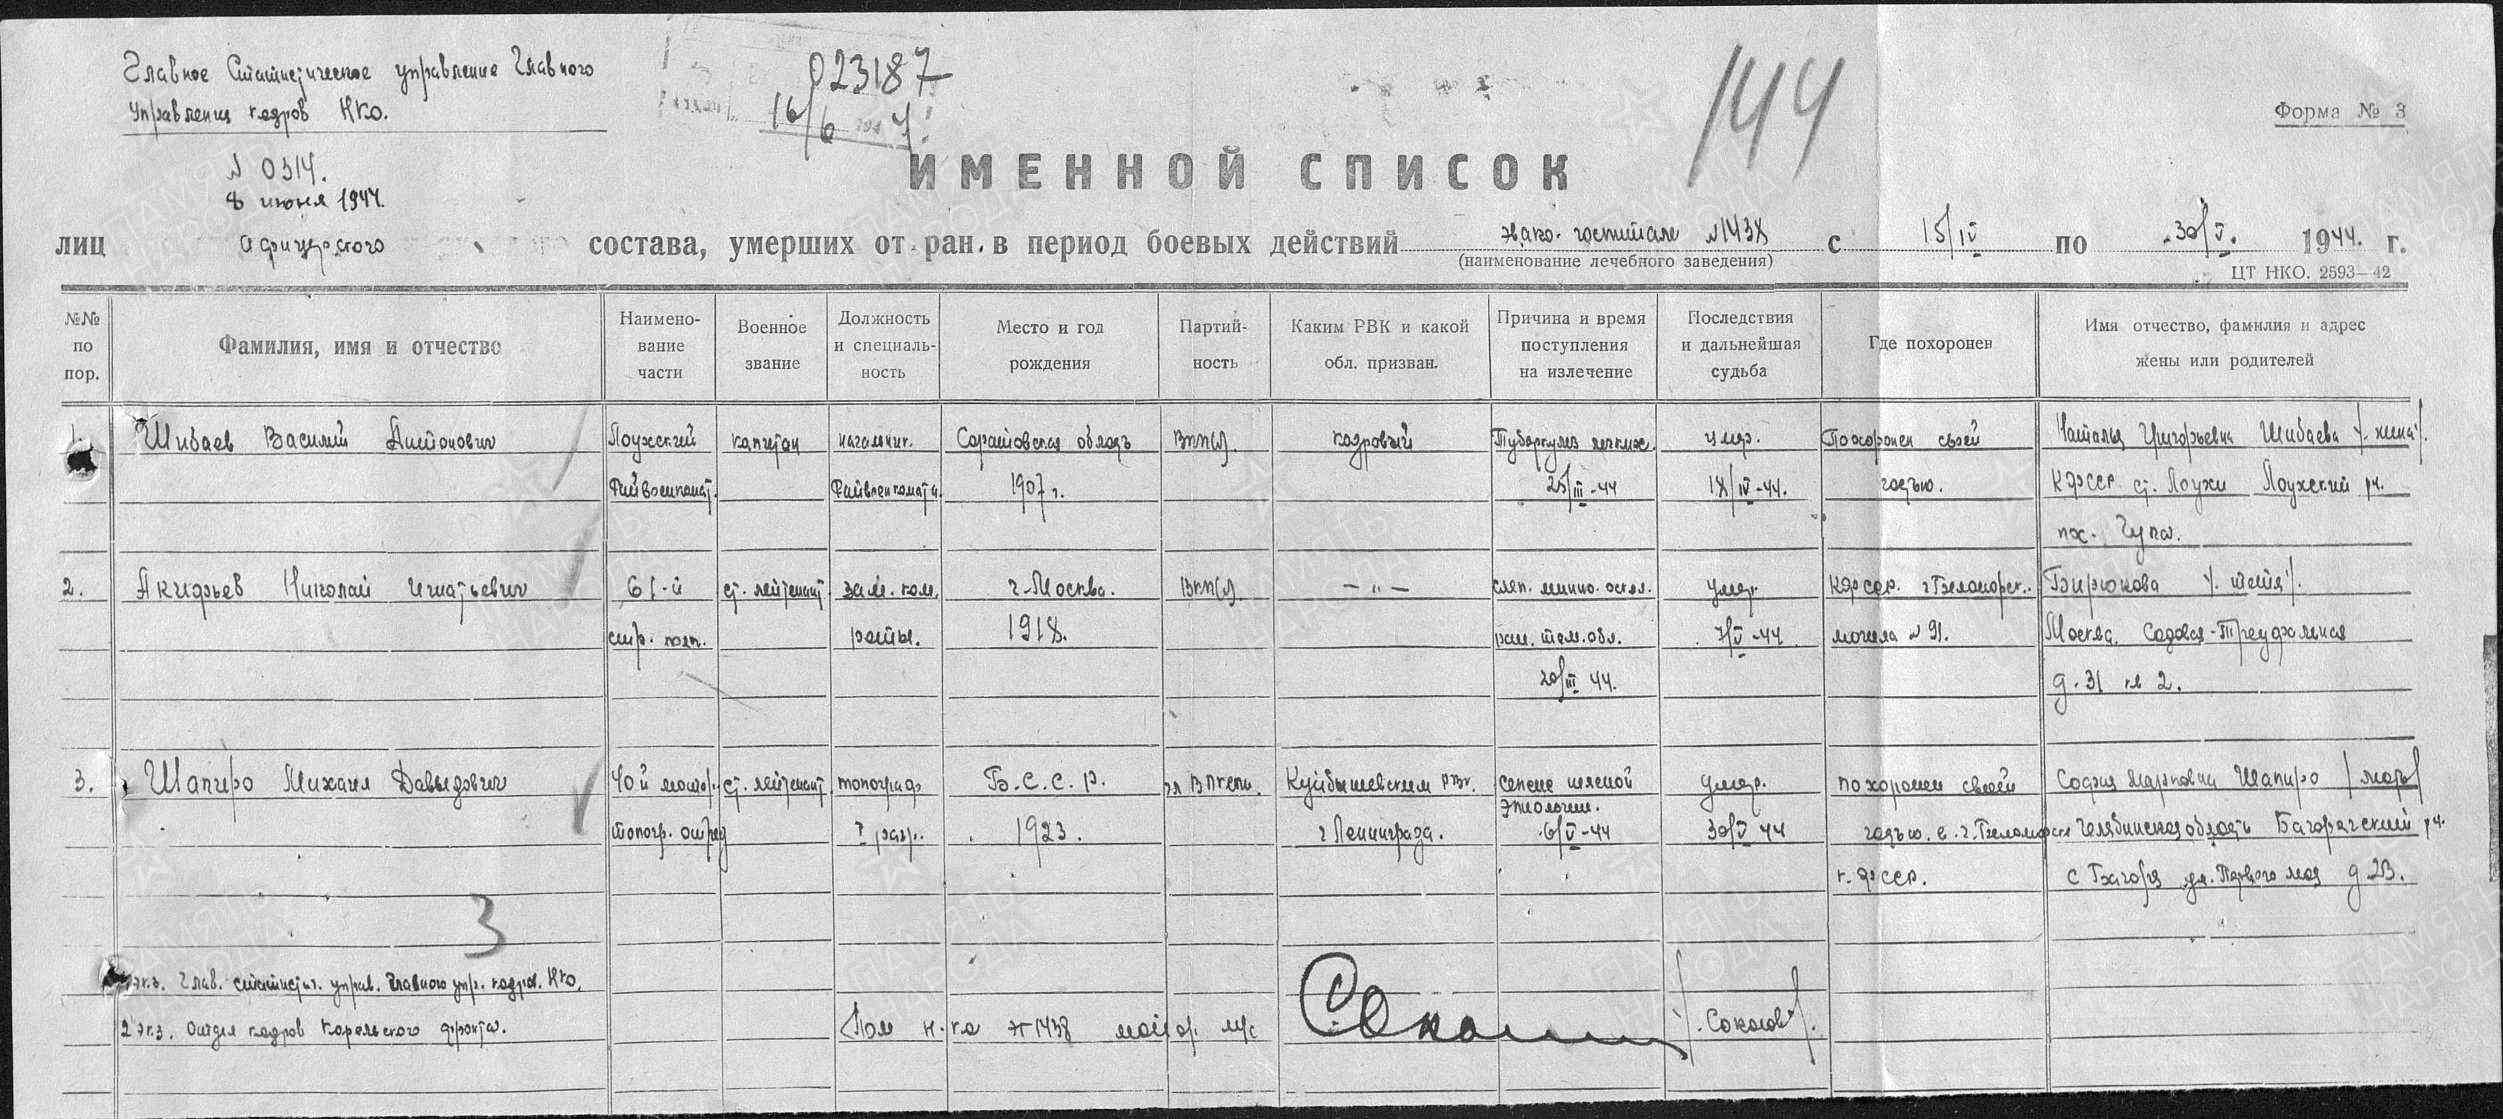 Главное Статистическое управление Главного
Управления кадров НКО.
023187
16/6 194 4
144
Форма № 3
N 0314.
8 июня 1944.
ИМЕННОЙ СПИСОК
лиц офицерского состава, умерших от ран в период боевых действий эвако-госпитале N1438 с 15/IV по 30/V. 1944. г.
(наименование лечебного заведения)
ЦТ НКО. 2593—42
№№ по пор.
Фамилия, имя и отчество
Наимено-вание части
Военное звание
Должность и специаль-ность
Место и год рождения
Партий-ность
Каким РВК и какой обл. призван.
Причина и время поступления на излечение
Последствия и дальнейшая судьба
Где похоронен
Имя отчество, фамилия и адрес жены или родителей
1. Шибаев Василий Антонович Лоухский капитан начальник. Саратовская область ВКП(б). кадровый Туберкулез легких. умер. Похоронен своей Наталья Григорьевна Шибаева /жена/.
Райвоенкомат. Райвоенкомата 1907 г. 25/III-44 18/IV-44. частью. КФССР ст. Лоухи Лоухский р-н.
пос. Чупа.
2. Акифьев Николай Игнатьевич 61-й ст. лейтенант зам. ком. г. Москва. ВКП(б). —"— слеп. минно. оскол. умер. КФССР. г Беломорск. Бирюкова /тетя/.
стр. полк. роты. 1918. ран. тем. обл. 7/V-44 могила N 91. Москва. Садовая-Триумфальная
20/III 44. д. 31 кв 2.
3. Шапиро Михаил Давыдович 40й мотор. ст. лейтенант топограф Б.С.С.Р. Куйбышевским РВК. сепсис неясной умер. похоронен своей София Марковна Шапиро /мать/
этиологии.
топогр. отряд I разр. 1923. г Ленинграда. 6/V-44 30/V 44 частью. в г. Беломорск Челябинская область Багарякский р-н.
К-ФССР. с Багаряк ул. Первого мая д 23.
3
экз. Глав. статист. управ. Главного упр. кадров. НКО.
2 экз. Отдел кадров Карельского фронта.
Пом н-ка ЭГ 1438 майор м/с /Соколов/.